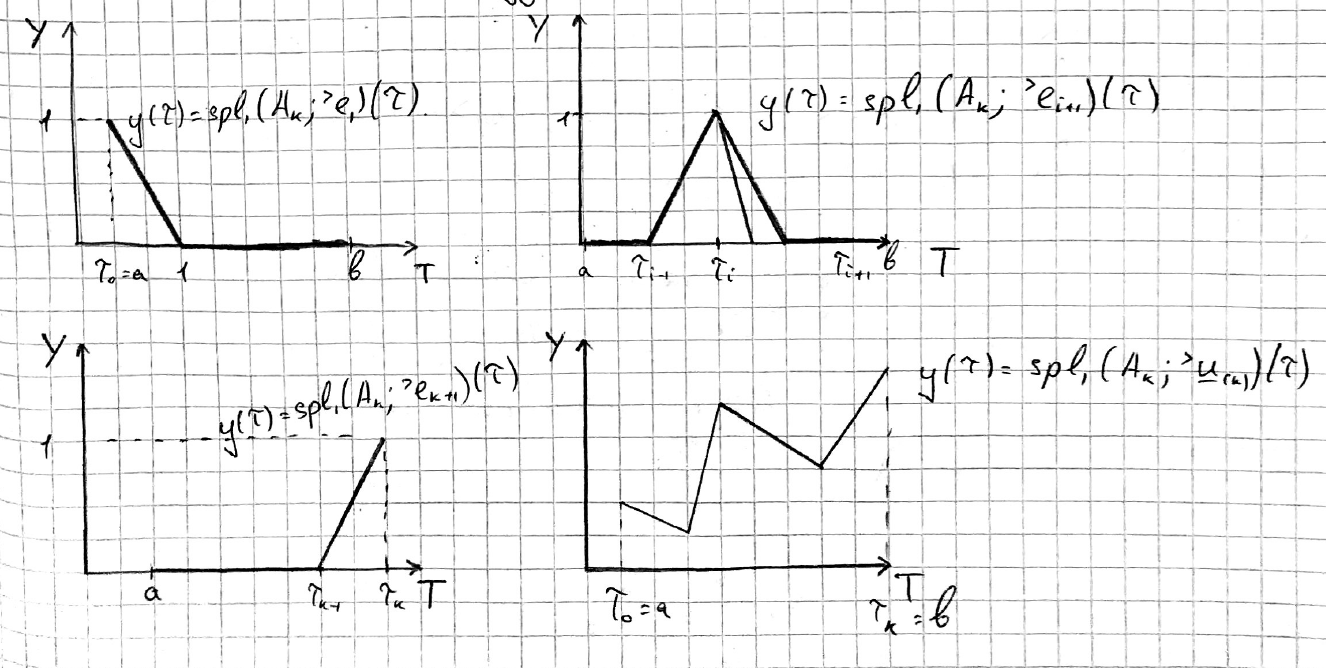 Y
1
y(τ) = spl₁(Aₖ; ^>e₁)(τ).
τ₀ = a 1 в T
Y
1
y(τ) = spl₁(Aₖ; ^>eᵢ₊₁)(τ)
a τᵢ₋₁ τᵢ τᵢ₊₁ в T
Y
y(τ) = spl₁(Aₖ; ^>eₖ₊₁)(τ)
1
a τₖ₋₁ τₖ T
Y
y(τ) = spl₁(Aₖ; ^>u₍ₖ₎)(τ)
T
τ₀ = a τₖ = в